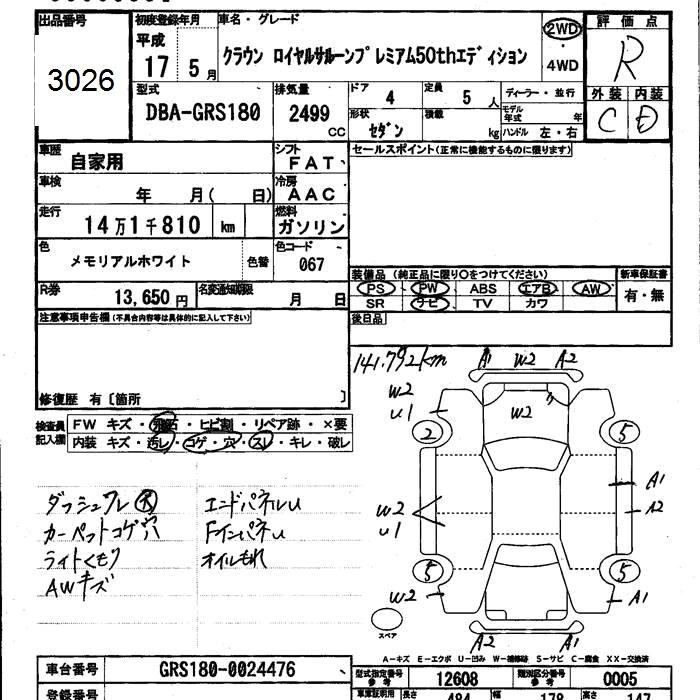 出品番号 初度登録年月 車名・グレード 評価点
3026
平成 17 5月
クラウン ロイヤルサルーンプレミアム50thエディション
2WD
・
4WD
R
型式 排気量 ドア 定員 ディーラー・並行 外装 内装
DBA-GRS180 2499 CC 4 5 人 モデル年式 年 C D
形状 積載
セダン kg ハンドル 左・右
車歴 自家用 シフト FAT
セールスポイント(正常に機能するものに限ります)
車検 年 月( 日) 冷房 AAC
走行 14万1千810 km 燃料 ガソリン
色 メモリアルホワイト 色替 色コード 067
装備品(純正品に限り○をつけてください) 新車保証書
PS PW ABS エアB AW 有・無
SR ナビ TV カワ
R券 13,650円 名変通知期限 月 日
後日品
注意事項申告欄(不具合内容等は具体的に記入して下さい)
修復歴 有〔箇所 〕
141.792km
A1 W2 A2
W2
U1
W2
2 5
検査員記入欄 FW キズ・飛石・ヒビ割・リペア跡・×要
内装 キズ・汚レ・コゲ・穴・スレ・キレ・破レ
A1
A2
W2
U1
ダッシュワレ エンドパネルU
カーペットコゲ穴 FインパネU
ライトくもり オイルもれ
AWキズ
5 5
W2 A1
スペア
A2 A1
A-キズ E-エクボ U-凹み W-補修跡 S-サビ C-腐食 XX-交換済
車台番号 GRS180-0024476
型式指定番号 参考 12608 類別区分番号 参考 0005
登録番号
車車証明用 長さ 484 幅 178 高さ 147